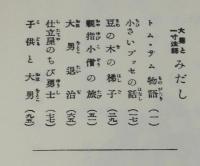 大男と
一寸法師
みだし
トム・サム物語(一)
小さいプッセの話(一七)
豆の木の梯子(二七)
親指小僧の旅(五一)
大男退治(六五)
仕立屋のちび勇士(七九)
子供と大男(九五)